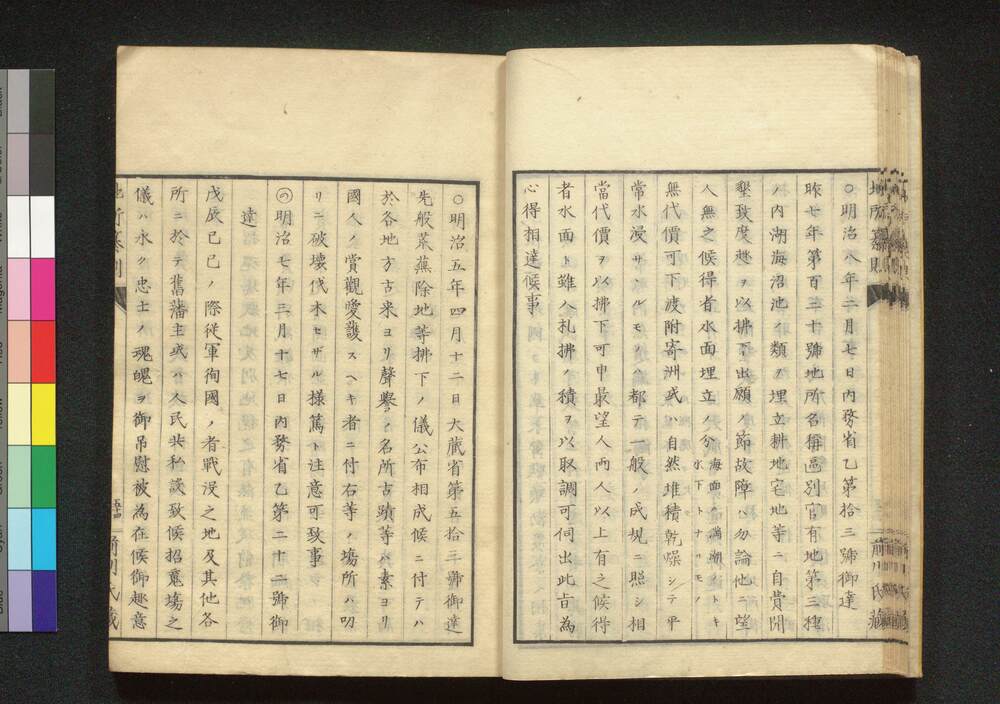 地所纂則
前川氏藏
○明治八年二月七日內務省乙第拾三號御達
昨七年第百二十號地所名稱區別官有地第三種
ノ內湖海沼池ノ類ヲ埋立耕地宅地等ニ自費開
墾致度趣ヲ以拂下出願ノ節故障ハ勿論他ニ望
人無之候得者水面埋立ノ分海面ハ滿潮ノトキ水下トナリモノ
無代價可下渡附寄洲或ハ自然堆積乾燥シテ平
常水浸サヽルモノハ都テ一般ノ成規ニ照シ相
當代價ヲ以拂下可申最望人兩人以上有之候得
者水面ト雖入札拂ノ積ヲ以取調可伺出此旨為
心得相達候事
○明治五年四月十二日大藏省第五拾三號御達
先般荒蕪除地等拂下ノ儀公布相成候ニ付テハ
於各地方古来ヨリ聲譽ノ名所古蹟等ハ素ヨリ
國人ノ賞觀愛護スヘキ者ニ付右等ノ場所ハ叨
リニ破壞伐木セザル様篤ト注意可致事
㋨明治七年三月十七日內務省乙第二十二號御
達
戊辰己巳ノ際従軍徇國ノ者戰沒之地及其他各
所ニ於テ舊藩主或ハ人民共私設致候招魂場之
儀ハ永ク忠士ノ魂魄ヲ御吊慰被為在候御趣意
地所纂則
前川氏藏